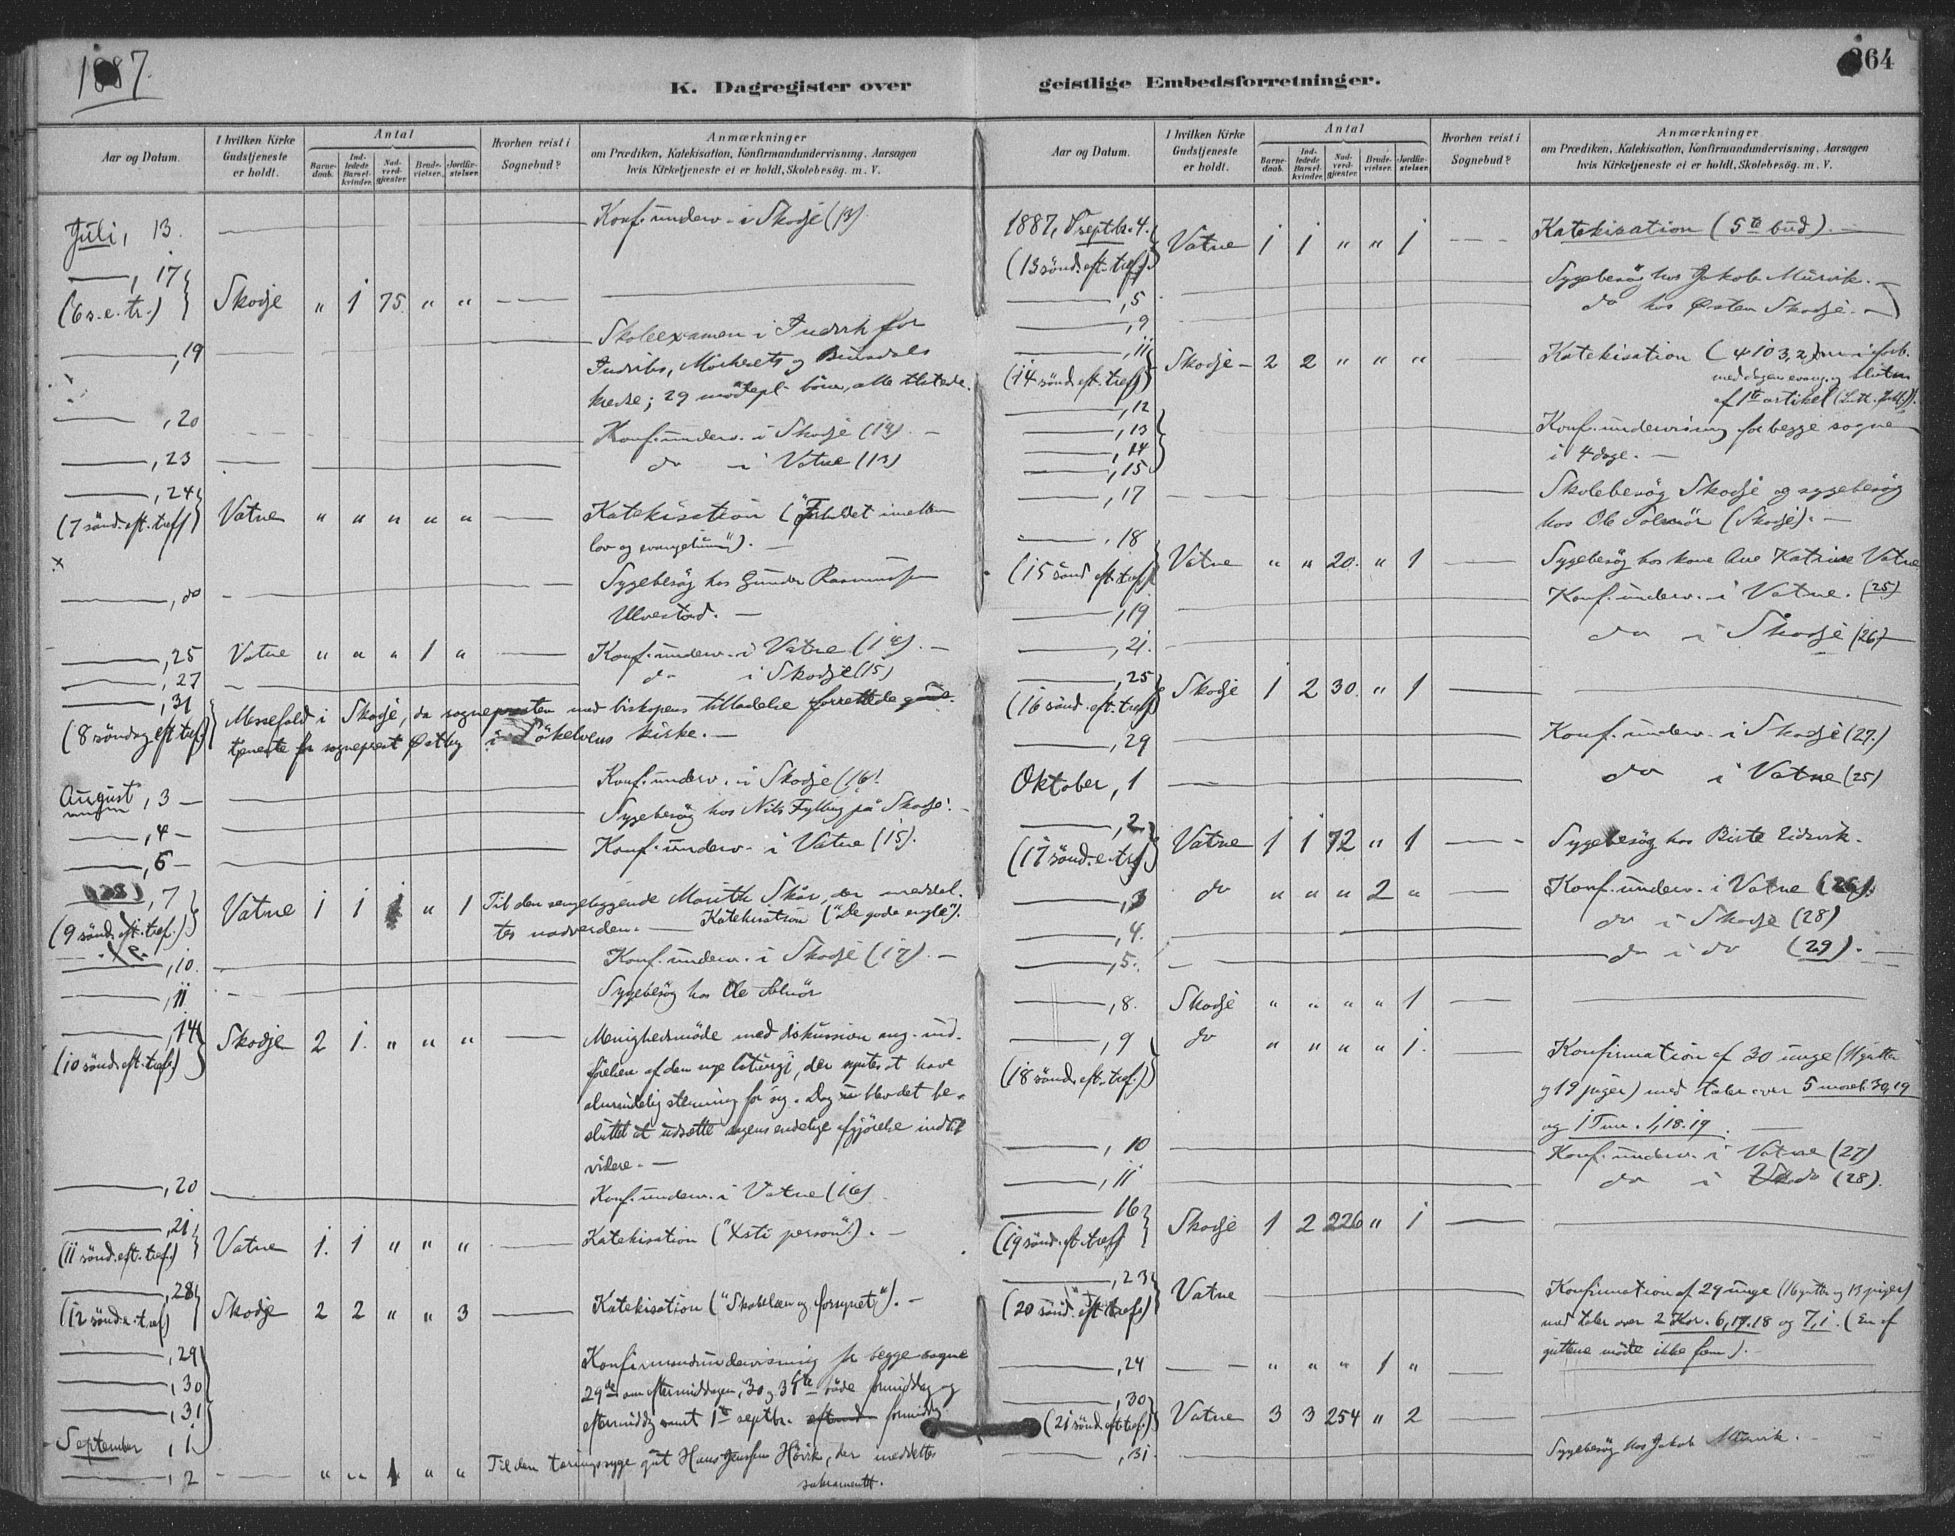 1887.
K. Dagregister over
Aar og Datum.
I hvilken Kirke Gudstjeneste er holdt.
Antal
Barne-daab.
Ind-ledede Barsel-kvinder.
Nad-verd-gjæster.
Brude-vielser.
Jordfæ-stelser.
Hvorhen reist i Sognebud?
Anmærkninger
om Prædiken, Katekisation, Konfirmandundervisning, Aarsagen
hvis Kirketjeneste ei er holdt, Skolebesög. m. V.
Juli, 13. Konf. underv. i Skodje (13).
, 17
(6 s. e. tr.) Skodje " 1 75. " "
, 19 Skoleexamen i for
og
kredse; 29
, 20 Konf. underv. i Skodje (14). —
, 23 do i Vatne (13)
, 24
(7 sönd. eft. tref) Vatne " " " " " Katekisation ("Forholdet imellem
lov og evangelium"). —
, do Sygebesög hos Gunder Rasmussen
Ulvestad. —
, 25 Vatne " " " 1 " Konf. underv. i Vatne (14). —
, 27 do i Skodje (15)
, 31
(8 söndag eft tref.) Messefald i Skodje, da sognepresten med biskopens tilladelse forrettede guds-
tjeneste for sogneprest Östby i Sökelvens kirke. —
August, 3 — Konf. underv. i Skodje (16).
, 4 — Sygebesög hos Nils Fylling på Skodje. —
, 6 — Konf. underv. i Vatne (15).
, 7
(9 sönd. eft. tref.) Vatne 1 1 " 1 Til den sengeliggende Marith Skår, der meddel-
tes nadverden. — Katekisation ("De gode engle").
, 10. Konf. underv. i Skodje (17). —
, 11 Sygebesög hos Ole Solnör
, 14
(10 sönd. eft. tref.) Skodje 2 1. " " " Menighedsmöde med diskussion ang. ind-
förelsen af den nye liturgi, der syntes at have
almindelig stemning for sig. Dog blev det be-
sluttet at udsætte sagens endelige afgjörelse indtil
videre. —
, 20 Konf. underv. i Vatne (16).
, 21
(11 sönd. eft. tref.) Vatne 1. 1 " " " Katekisation ("Xsti person"). —
, 28
(12 sönd. e. tref) Skodje 2 2 " " 3 Katekisation ("Skabelsen og forsynet"). —
, 29 Konfirmandundervisning for begge sogne
, 30 29de om eftermiddagen, 30 og 31te både formiddag og
, 31 eftermiddg samt 1te septbr. efterm formiddg
September, 1
, 2 " " 1 " " Til den tæringssyge gut Hans Jenssen Hörvik, der meddeltes
sakramentet.
264
geistlige Embedsforretninger.
Aar og Datum.
I hvilken Kirke Gudstjeneste er holdt.
Antal
Barne-daab.
Ind-ledede Barsel-kvinder.
Nad-verd-gjæster.
Brude-vielser.
Jordfæ-stelser.
Hvorhen reist i Sognebud?
Anmærkninger
om Prædiken, Katekisation, Konfirmandundervisning, Aarsagen
hvis Kirketjeneste ei er holdt, Skolebesög. m. V.
1887, Septbr. 4.
(13 sönd. eft. tref) Vatne 1 1 " " 1 Katekisation (5te bud). —
, 5 Sygebesög hos Jakob Mürvik. —
, 9 do hos Østen Skodje. —
, 11
(14 sönd. eft. tref) Skodje — 2 2 " " " Katekisation (4 i forb.
med dagens evang. og slutn
af 1te artikel
, 12
, 13 Konf. undervisning for begge sogne
, 14 i 4 dage. —
, 15
, 17 Skolebesög Skodje og sygebesög
hos Ole Solnör (Skodje). —
, 18
(15 sönd eft. tref) Vatne " " 20. " 1 Sygebesög hos kone Ane Katrine Vatne
, 19 Konf. underv. i Vatne. (25)
, 21. do i Skodje (26)
, 25
(16 sönd. eft. tref) Skodje 1 2 30. " 1
, 29 Konf. underv. i Skodje (27.)
Oktober, 1 do i Vatne (25)
, 2
(17 sönd. e. tref) Vatne 1 1 72 " 1 Sygebesög hos Birte Eidsvik.
, 3 do " " " 2 " Konf. underv. i Vatne (26).
, 4. do i Skodje (28)
, 5. do i do (29). —
, 8. Skodje " " " " 1
, 9 do " " " " 1.
(18 sönd. eft. tref.) Konfirmation af 30 unge (11 gutter
og 19 piger) med taler over 5 moseb. 30,19
og 1 Tim. 1,18.19. —
, 10 Konf. underv. i Vatne (27)
, 11 do i do (28).
16
(19 sönd. eft. tref) Skodje 1 2 226 " 1
, 23
(20 sönd. eft. tref.) Vatne Konfirmation af 29 unge (16 gutter og 13 piger)
med taler over 2 Kor. 6,17.18 og 7,1. (En af
guttene mödte ikke frem). —
, 24 — " " " 1 "
, 30
(21 sönd. eft. tref.) Vatne 3 3 254 " 2
, 31. Sygebesög hos Jakob Mürvik. —